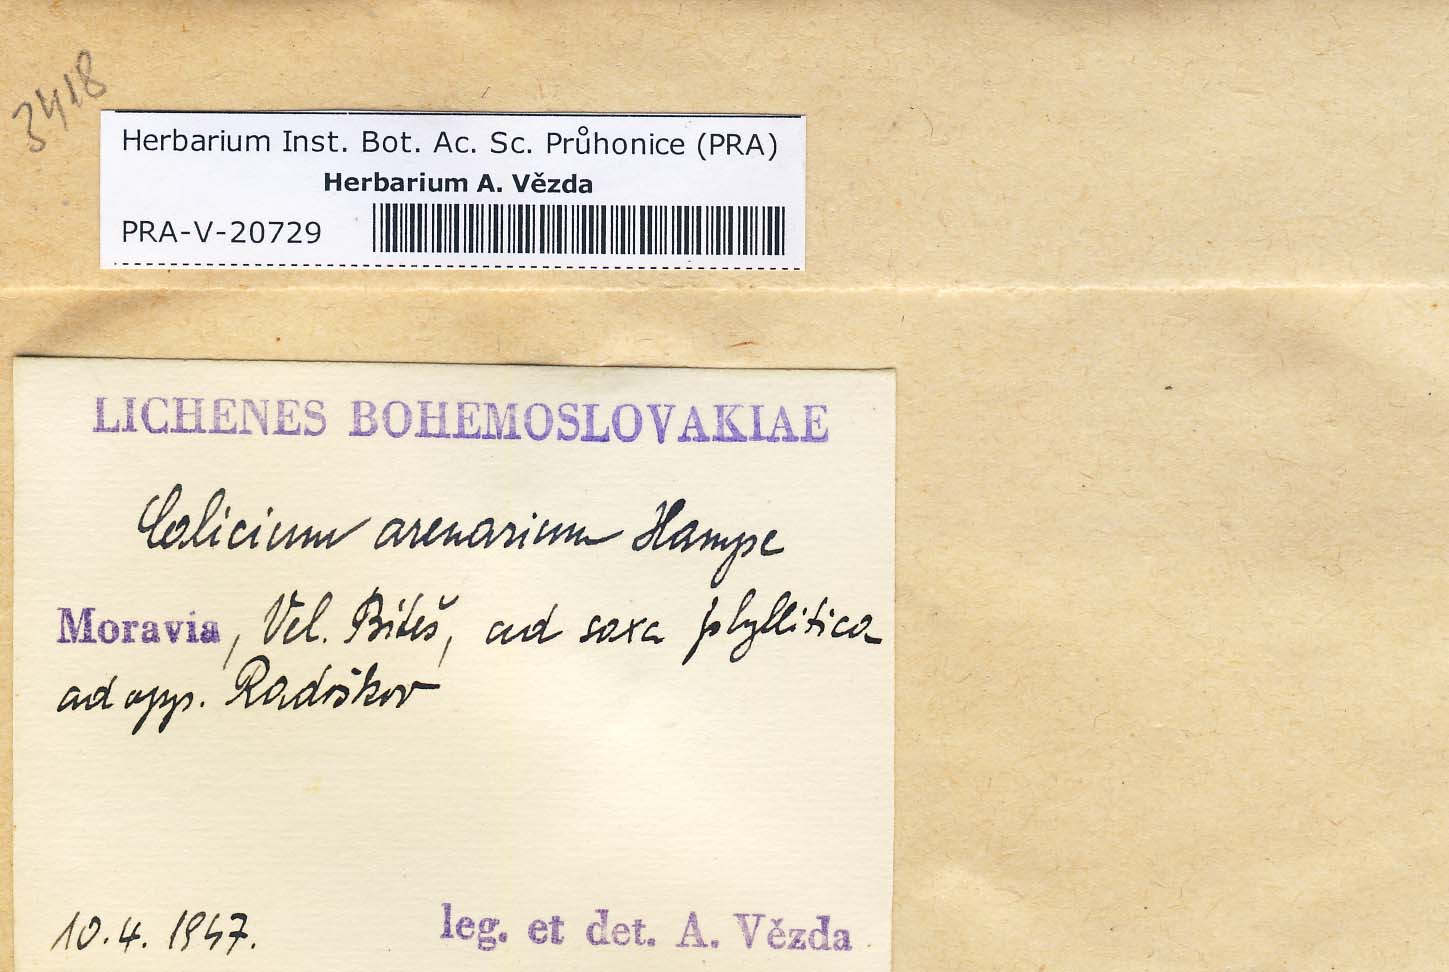 3418
Herbarium Inst. Bot. Ac. Sc. Průhonice (PRA)
Herbarium A. Vězda
PRA-V-20729
LICHENES BOHEMOSLOVAKIAE
Calicium arenarium Hampe
Moravia, Vel. Biteš, ad saxa phyllitica
ad opp. Radoškov
10.4. 1947.
leg. et det. A. Vězda